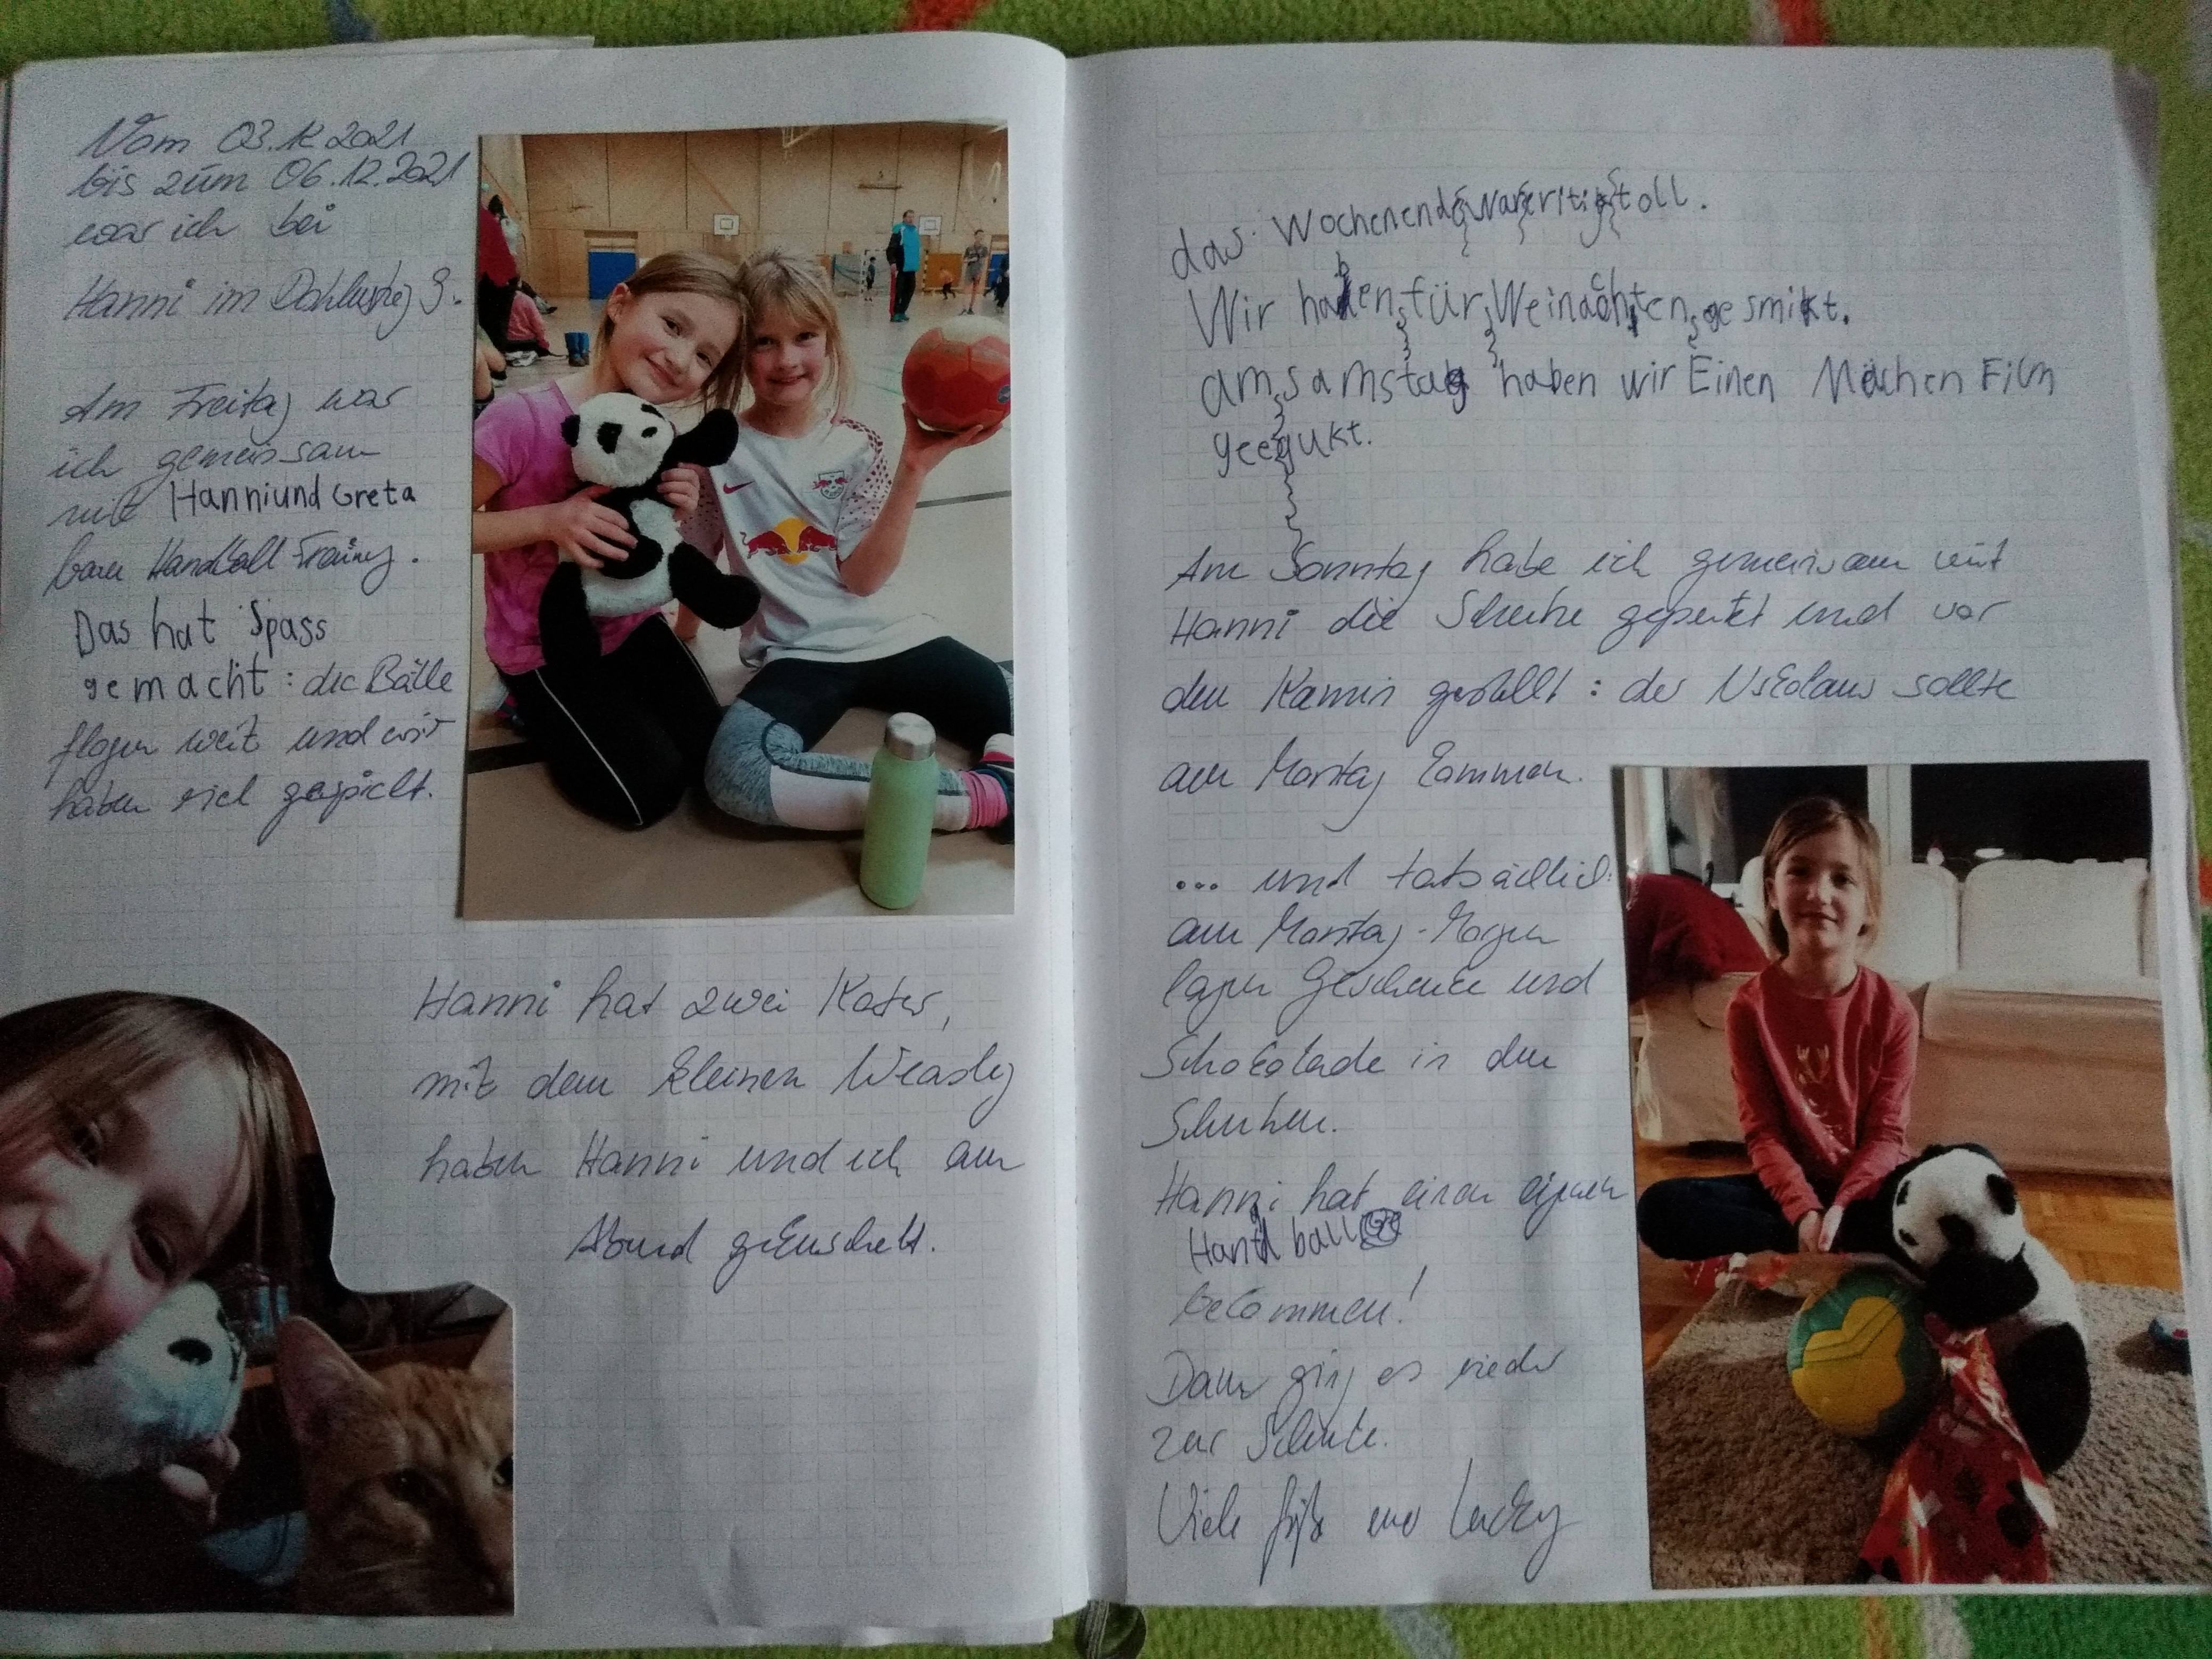 Vom 03.12.2021
bis zum 06.12.2021
war ich bei
Hanni im 3.
Am Freitag war
ich gemeinsam
mit Hanni und Greta
beim Handball-Training.
Das hat Spass
gemacht: die Bälle
flogen weit und wir
haben viel gespielt.
Hanni hat zwei Kater,
mit dem kleinen Weasley
haben Hanni und ich am
Abend gekuschelt.
das Wochenende war eritig toll.
Wir haben für Weinachten gesmikt.
am samstag haben wir Einen Mächen Film
geegukt.
Am Sonntag habe ich gemeinsam mit
Hanni die Schuhe geputzt und vor
den Kamin gestellt: der Nikolaus sollte
am Montag kommen.
... und tatsächlich:
am Montag-Morgen
lagen Geschenke und
Schokolade in den
Schuhen.
Hanni hat einen eigenen
Handball
bekommen!
Dann ging es wieder
zur Schule.
Viele Grüße euer Lucky